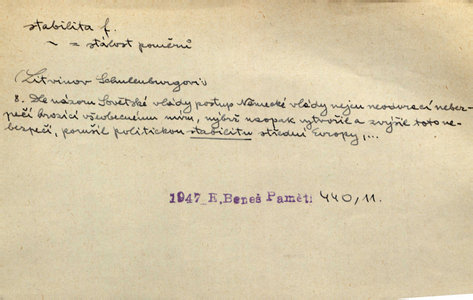 stabilita f.
~ = stálost poměrů
(Litvinov Schulenburgovi)
8. Dle názoru Sovětské vlády postup Německé vlády nejen neodvrací nebez-
pečí hrozící všeobecnému míru, nýbrž naopak vytvořil a zvýšil toto ne-
bezpečí, porušil politickou stabilitu střední Evropy,...
1947 E. Beneš Paměti 440/11.